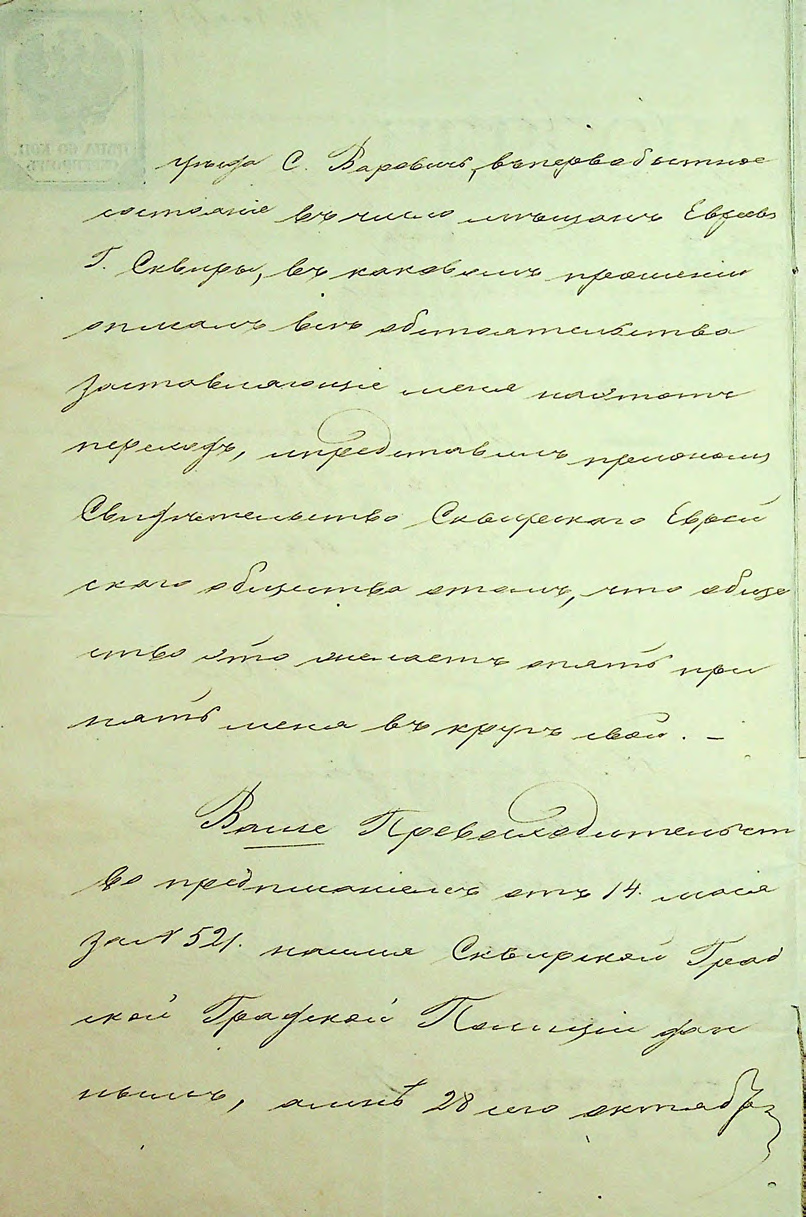 уѣзда С. Варовичъ, въ первобытное
состояніе въ число мѣщанъ Евреевъ
Г. Сквиры, въ каковомъ прошеніи
описалъ всѣ обстоятельства
заставляющіе меня на этотъ
переходъ, и представилъ при ономъ
Свидѣтельство Сквирского Еврей
ского общества о томъ, что обще
ство это желаетъ опять при
нять меня въ кругъ свой. —
Ваше Превосходительст
во предписаніемъ отъ 14. мая
за № 521. Сквирской Град
ской Полиціи дан
нымъ, а мнѣ 28 сего октября